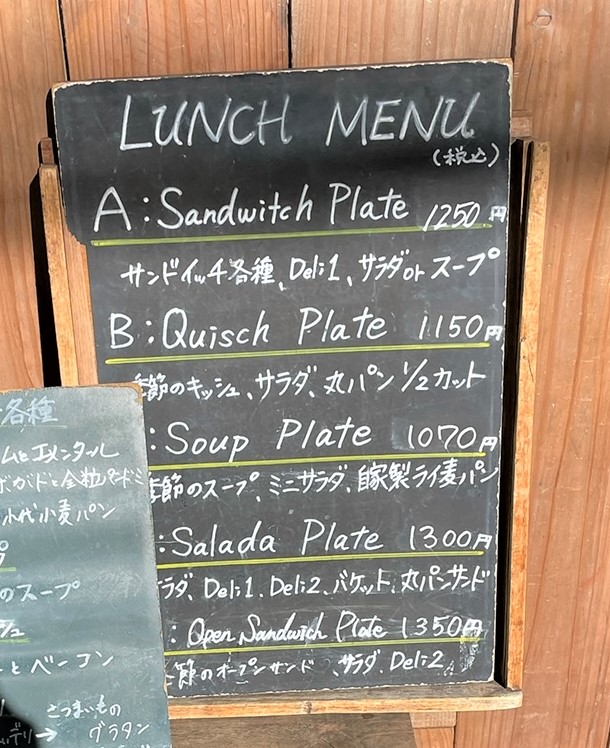 LUNCH MENU
(税込)
A:Sandwitch Plate 1250円
サンドイッチ各種、Deli1、サラダorスープ
B:Quisch Plate 1150円
季節のキッシュ、サラダ、丸パン1/2カット
:Soup Plate 1070円
季節のスープ、ミニサラダ、自家製ライ麦パン
:Salada Plate 1300円
ラダ、Deli1、Deli2、バゲット、丸パンサンド
:Open Sandwich Plate 1350円
節のオープンサンド、サラダ、Deli2
各種
ムとエメンタール
ボガドと全粒
古代小麦パン
のスープ
シュ
とベーコン
さつまいもの
デリ→ グラタン